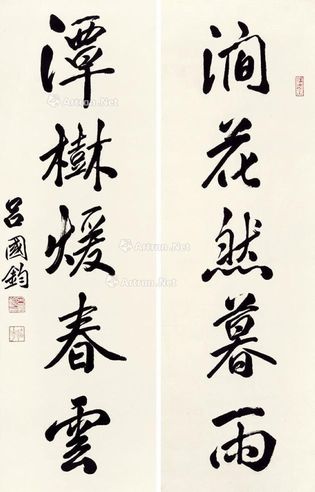 澗花然暮雨
潭樹煖春雲
呂國鈞
Artron.Net
Artron.Net
Artron.Net
Artron.Net